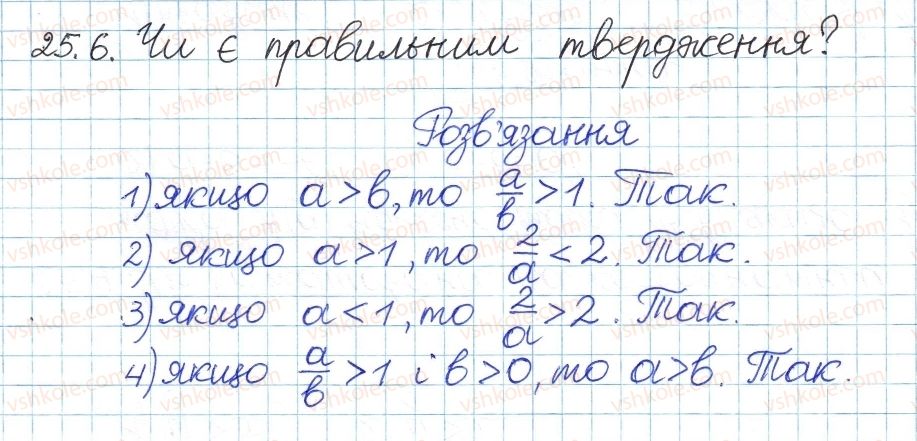 25.6. Чи є правильним твердження?
Розв'язання
1) якщо a > b, то a/b > 1. Так.
2) якщо a > 1, то 2/a < 2. Так.
3) якщо a < 1, то 2/a > 2. Так.
4) якщо a/b > 1 і b > 0, то a > b. Так.